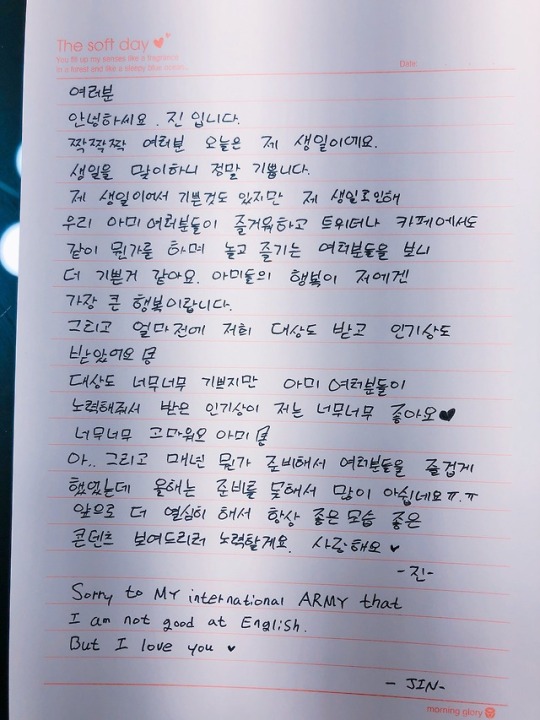 The soft day
You fill up my senses like a fragrance
in a forest and like a sleepy blue ocean.
Date.
여러분
안녕하세요. 진 입니다.
짝짝짝 여러분 오늘은 제 생일이에요.
생일을 맞이하니 정말 기쁩니다.
제 생일이여서 기쁜것도 있지만 제 생일로인해
우리 아미여러분들이 즐거워하고 트위터나 카페에서도
같이 뭔가를 하며 놀고 즐기는 여러분들을 보니
더 기쁜거 같아요. 아미들의 행복이 저에겐
가장 큰 행복이랍니다.
그리고 얼마전에 저희 대상도 받고 인기상도
받았어요
대상도 너무너무 기쁘지만 아미 여러분들이
노력해줘서 받은 인기상이 저는 너무너무 좋아요♥
너무너무 고마워요 아미
아.. 그리고 매년 뭔가 준비해서 여러분들을 즐겁게
했었는데 올해는 준비를 못해서 많이 아쉽네요ㅠ.ㅠ
앞으로 더 열심히 해서 항상 좋은 모습 좋은
콘텐츠 보여드리려 노력할게요. 사랑해요 ♥
-진-
Sorry to MY international ARMY that
I am not good at English.
But I love you ♥
- JIN-
morning glory